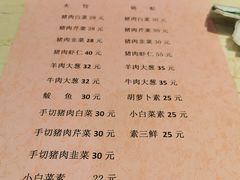 水饺
猪肉白菜 28 元 猪肉白菜 30 元
猪肉芹菜 28 元 猪肉芹菜 30 元
猪肉韭菜 28 元 猪肉韭菜 30 元
猪肉虾仁 40 元 猪肉虾仁 55 元
羊肉大葱 32 元 羊肉大葱 35 元
牛肉大葱 32 元 牛肉大葱 35 元
鲅鱼 30 元 胡萝卜素 25 元
手切猪肉白菜 30 元 小白菜素 25 元
手切猪肉芹菜 30 元 素三鲜 25 元
手切猪肉韭菜 30 元
小白菜素 22 元